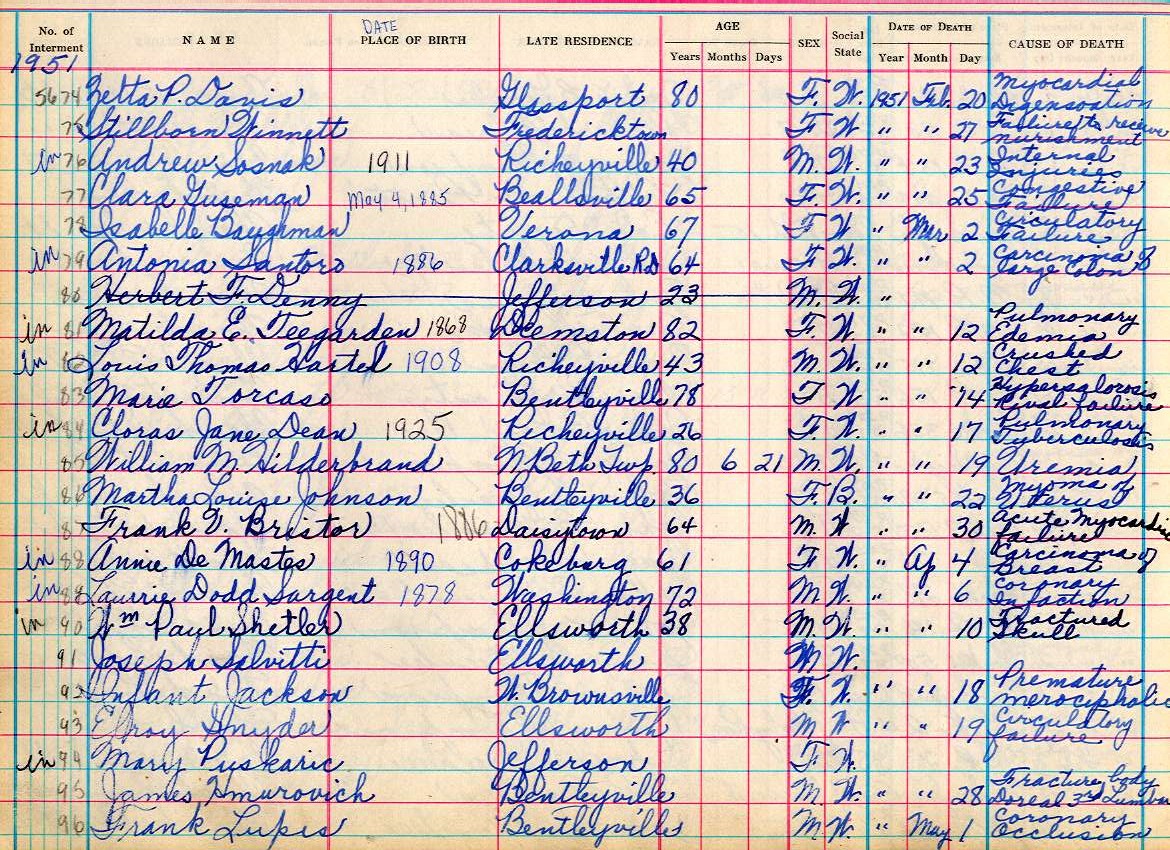 No. of Interment NAME DATE PLACE OF BIRTH LATE RESIDENCE AGE Years Months Days SEX Social State DATE OF DEATH Year Month Day CAUSE OF DEATH
1951
5674 Zetta P. Davis Glassport 80 F. W. 1951 Feb. 20 Myocardial
75 Stillborn Winnett Fredericktown F W " " 27 Failure to receive nurishment
in 76 Andrew Sosnak 1911 Richeyville 40 M. W. " " 23 Internal Injuries
77 Clara Guseman May 4, 1885 Beallsville 65 F. W. " " 25 Congestive Failure
78 Isabelle Baughman Verona 67 F W " Mar 2 Circulatory Failure
in 79 Antonia Santoro 1886 Clarksville RD 64 F W " " 2 Carcinoma of large Colon
80 Herbert F. Denny Jefferson 23 M. W. "
in 81 Matilda E. Teegarden 1868 Deemston 82 F. W. " " 12 Pulmonary Edemia
in Louis Thomas Hartel 1908 Richeyville 43 M. W. " " 12 Crushed Chest
83 Marie Torcaso Bentleyville 78 F W. " " 14 failure
in 84 Cloras Jane Dean 1925 Richeyville 26 F. W. " " 17 Pulmonary Tuberculosis
85 William M. Hilderbrand N Beth Twp. 80 6 21 M. W. " " 19 Uremia
86 Martha Louise Johnson Bentleyville 36 F. B. " " 22 Myoma of Uterus
87 Frank V. Bristor 1886 Daisytown 64 M. W " " 30 Acute Myocardial Failure
in 88 Annie De Mastes 1890 Cokeburg 61 F W. " Ap 4 Carcinoma of Breast
in 88 Laurrie Dodd Sargent 1878 Washington 72 M W. " " 6 Coronary Infaction
in 90 Wm Paul Shetler Ellsworth 38 M. W. " " 10 Fractured Skull
91 Joseph Salvitti Ellsworth M W.
92 Infant Jackson W. Brownsville F. W. " " 18 Premature
93 Elroy Snyder Ellsworth M W " " 19 Circulatory failure
in 94 Mary Puskaric Jefferson F W.
95 James Hmurovich Bentleyville M W. " " 28 Fracture body Doreal 3rd Lumbar
96 Frank Lupis Bentleyville M W. " May 1 Coronary Occlusion